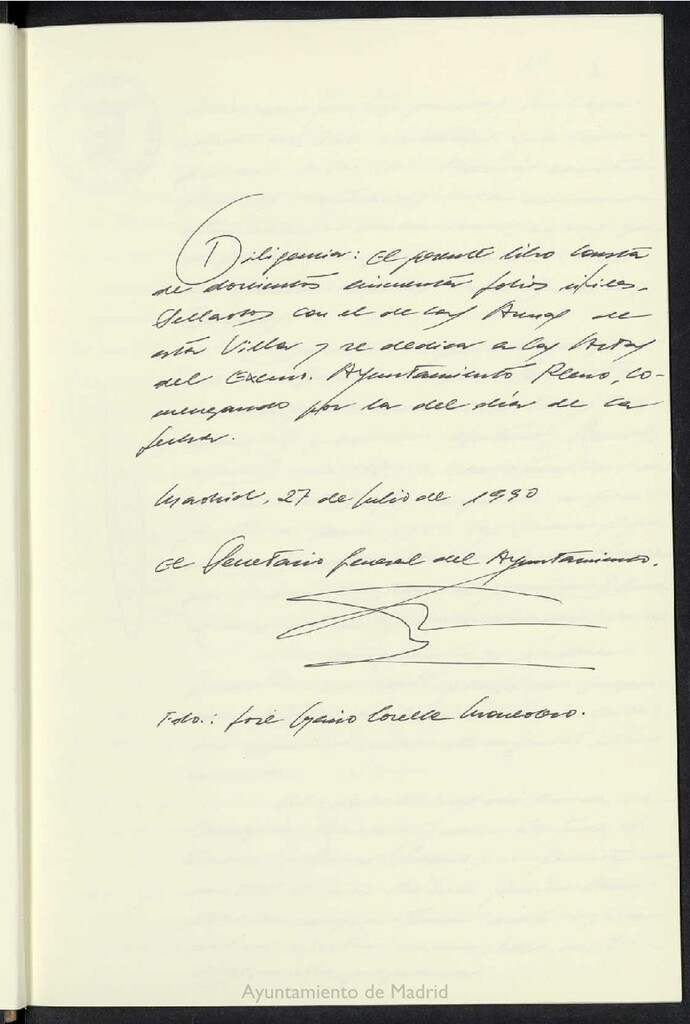 Diligencia: El presente libro consta
de doscientos cincuenta folios útiles,
Sellados con el de las Armas de
esta Villa y se dedica a las Actas
del Excmo. Ayuntamiento Pleno, co-
menzando por la del día de la
fecha.
Madrid, 27 de julio de 1990
El Secretario General del Ayuntamiento.
Fdo.: José Corella
Ayuntamiento de Madrid